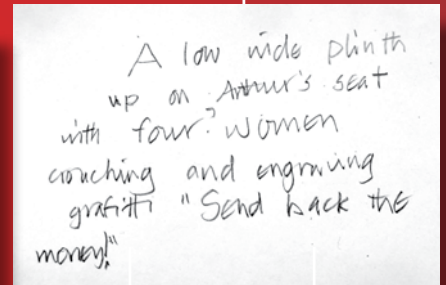 A low wide plinth
up on Arthur's seat
with four? women
crouching and engraving
grafitti "Send back the
money!"